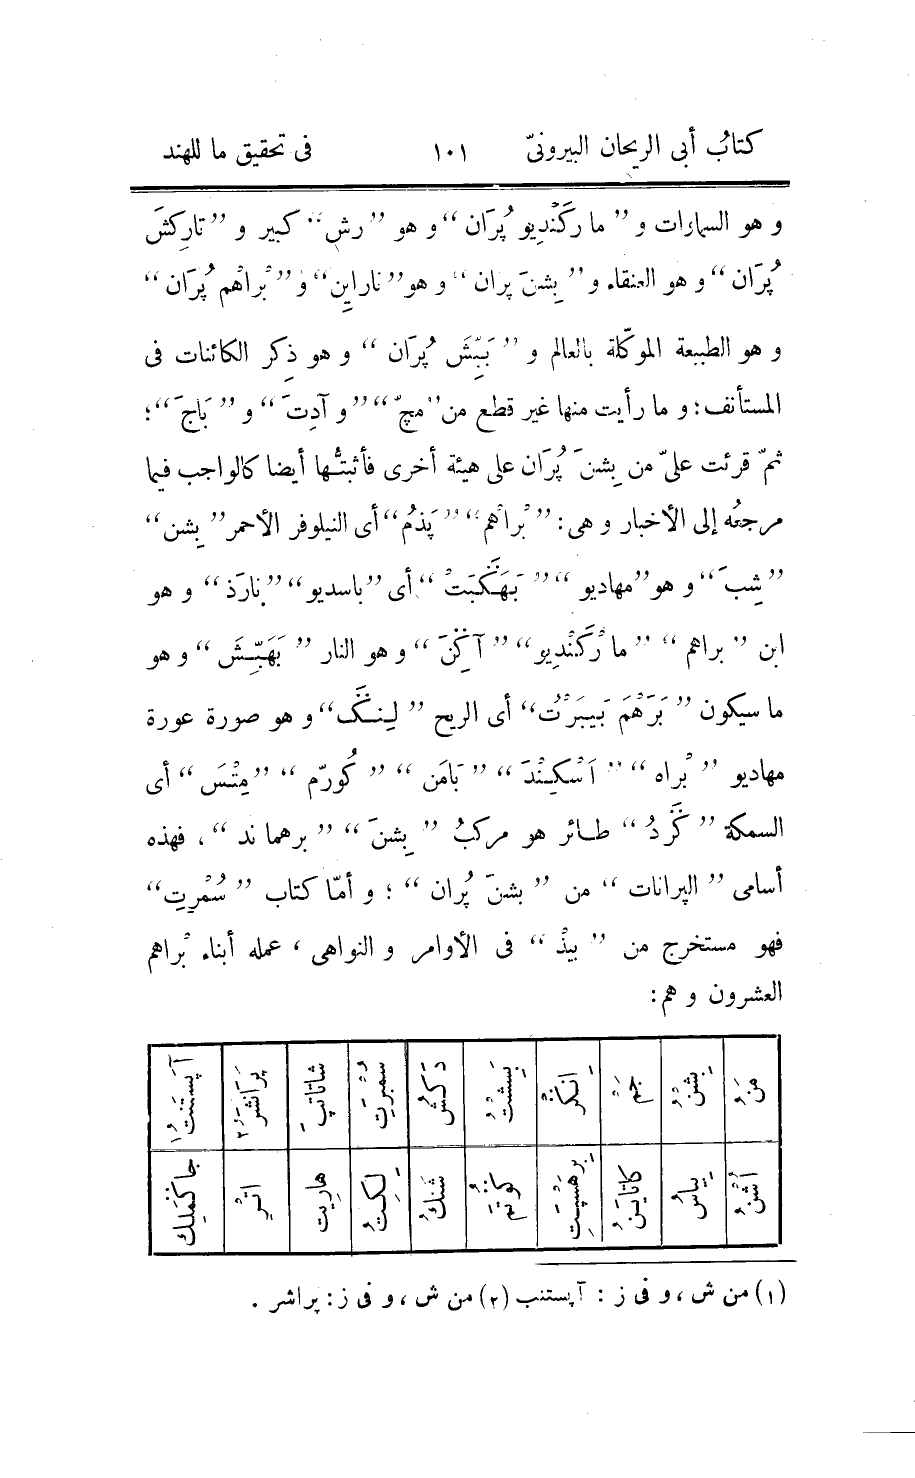 كتاب أبى الريحان البيرونىّ ١٠١ فى تحقيق ما للهند
و هو السيارات و ”مارْكَنْديو پُرَان“ و هو ”رش“ كبير و ”تارِكشَ
پُرَان“ و هو العنقاء و ”بِشنَ پران“ و هو ”ناراينِ“ و ”بْراهْم پُرَان“
و هو الطبيعة الموكّلة بالعالم و ”بَبِّشَ پُرَان“ و هو ذِكر الكائنات فى
المستأنف؛ و ما رأيت منها غير قطع من ”مچّ“ ”و آدِتَ“ و ”بَاجَ“؛
ثمّ قرئت علىّ من بِشنَ پُرَان على هيئة أخرى فأثبتُّها أيضا كالواجب فيما
مرجعُه إلى الأخبار و هى: ”بْراهْم“ ”پَذمُ“ أى النيلوفر الأحمر ”بِشن“
”شِبَ“ و هو ”مهاديو“ ”بَهَگبَتْ“ أى ”باسديو“ ”نارَذ“ و هو
ابن ”براهم“ ”مارْكَنْدِيو“ ”آگنَ“ و هو النار ”بَهَبِّش“ و هو
ما سيكون ”بَرَهْمَ بَيبَرْتُ“ أى الريح ”لِنگ“ و هو صورة عورة
مهاديو ”بْراه“ ”اَسْكِنْدَ“ ”بَامَن“ ”كُورَم“ ”مِتْسَ“ أى
السمكة ”گرُدُ“ طائر هو مركبُ ”بِشنَ“ ”برهماند“، فهذه
أسامى ”البرانات“ من ”بشنَ پُران“؛ و أمّا كتاب ”سُمْرِتِ“
فهو مستخرج من ”بيذْ“ فى الأوامر و النواهى، عمله أبناء بْراهم
العشرون و هم:
مَنُ بِشنُ جَمَ اِنگرُ بَسِشتُ دَكشُ سمبرتِ شاتاتپَ پَرَاشَرَ٢ آپَستنتُ١
اُشنُ بِياسُ كاتاينُ برهسپتِ گوتمُ شنكُ لِكِتُ هارِيت اترِ جاگمَلِك
(١) من ش، و فى ز: آپستنب (٢) من ش، و فى ز: پراشر.